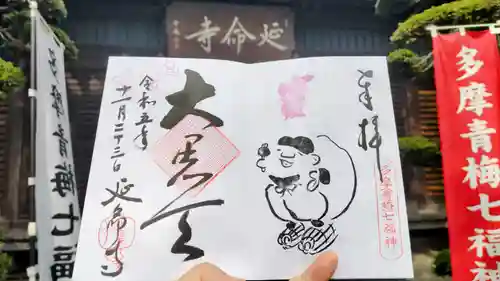 延命寺
多摩青梅七福
多摩青梅七福
奉拝
多摩青梅七福神
大黒天
令和五年
十一月二十三日
延命寺